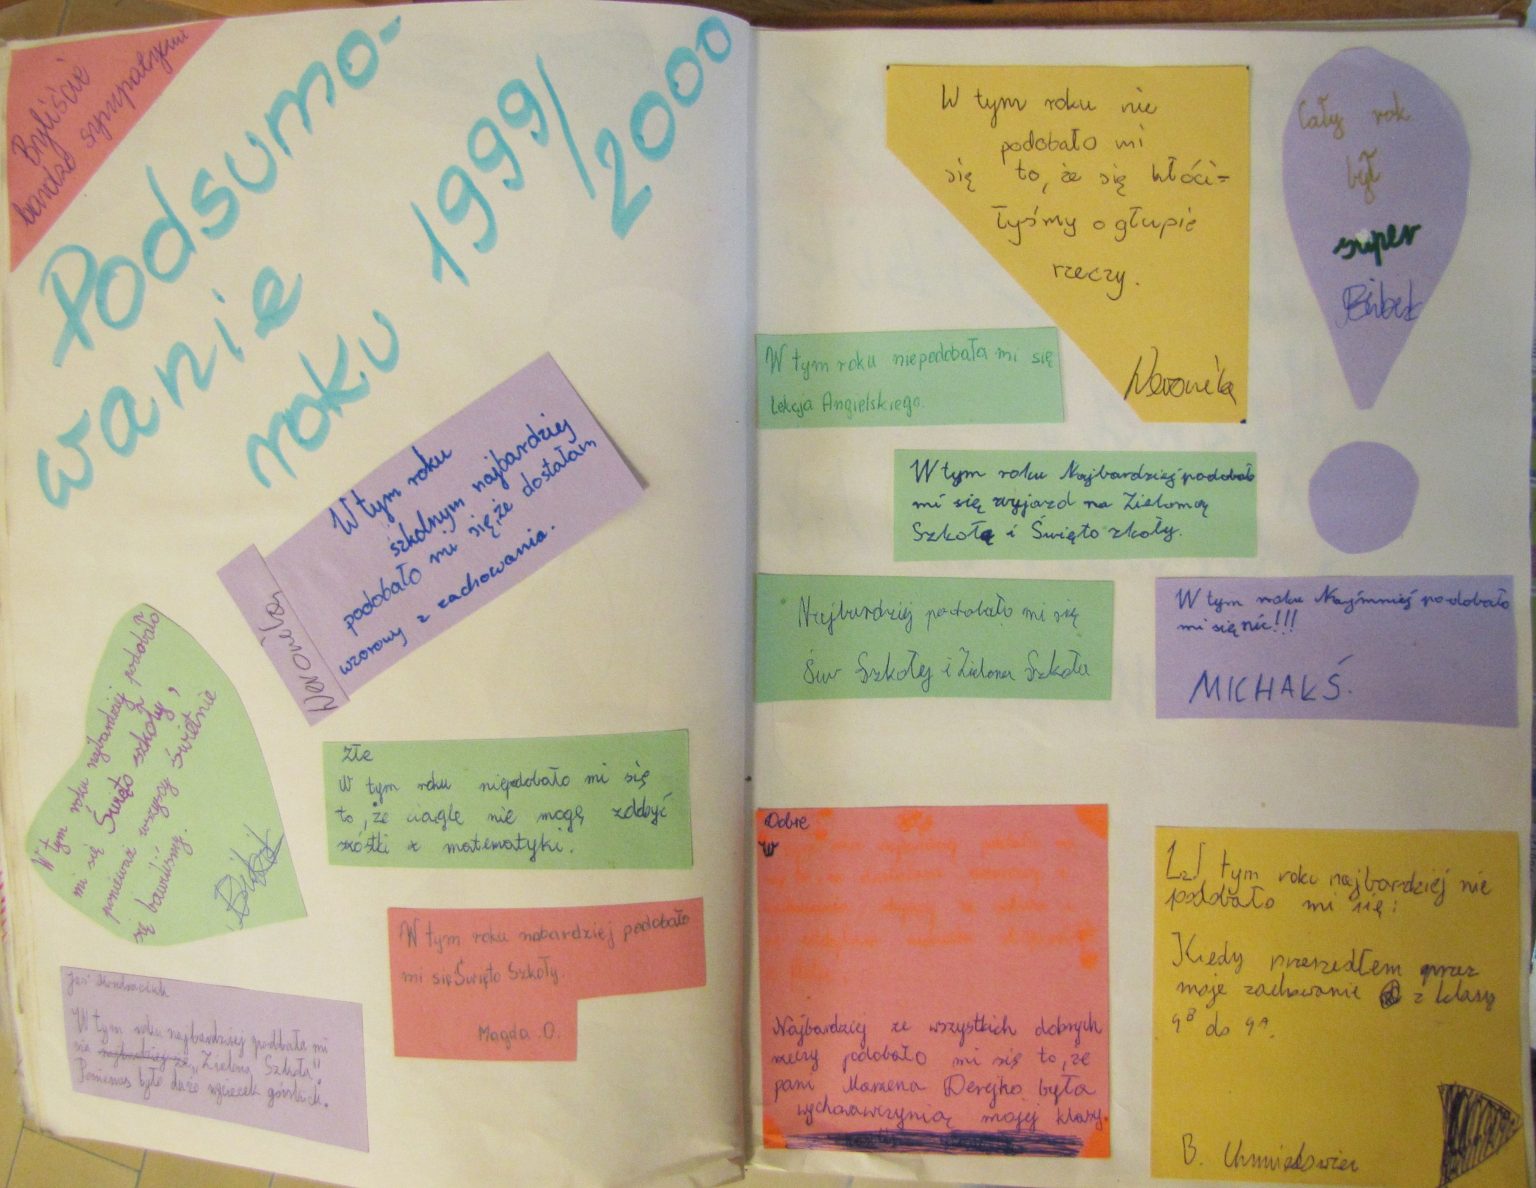 Byliście
bardzo sympatyczni
Podsumo-
wanie
roku 1999/2000
W tym roku
szkolnym najbardziej
podobało mi się, że dostałam
wzorowy z zachowania.
Weronika
W tym roku najbardziej podobało
mi się Święto szkoły,
ponieważ wszyscy świetnie
się bawiliśmy.
Złe
W tym roku niepdobało mi się
to, że ciągle nie mogę zdobyć
szóstki z matematyki.
W tym roku nabardziej podobało
mi się Święto Szkoły.
Magda O.
Jaś
W tym roku najbardziej podbała mi
sie najbardziej ze „Zielona Szkoła".
Poniewas było dużo wycieczek górskich.
W tym roku nie
podobało mi
się to, że się kłóci=
łyśmy o głupie
rzeczy.
Weronika
Cały rok
był
super
Bibek
W tym roku niepodobała mi się
Lekcja Angielskiego.
W tym roku Najbardziej podobało
mi się wyjazd na Zieloną
Szkołę i Święto zkoły.
Najbardziej podobało mi się
Św Szkołej i Zielona Szkoła
W tym roku Najmniej podobało
mi się nic!!!
MICHAŁ Ś.
Dobre
W
Najbardziej ze wszystkich dobrych
rzeczy podobało mi się to, że
pani Marzena Derejko była
wychowawczynią mojej klasy.
W tym roku najbardziej nie
podobało mi się:
Kiedy przeszedłem przez
moje zachowanie z klasy
4B do 4A.
B.